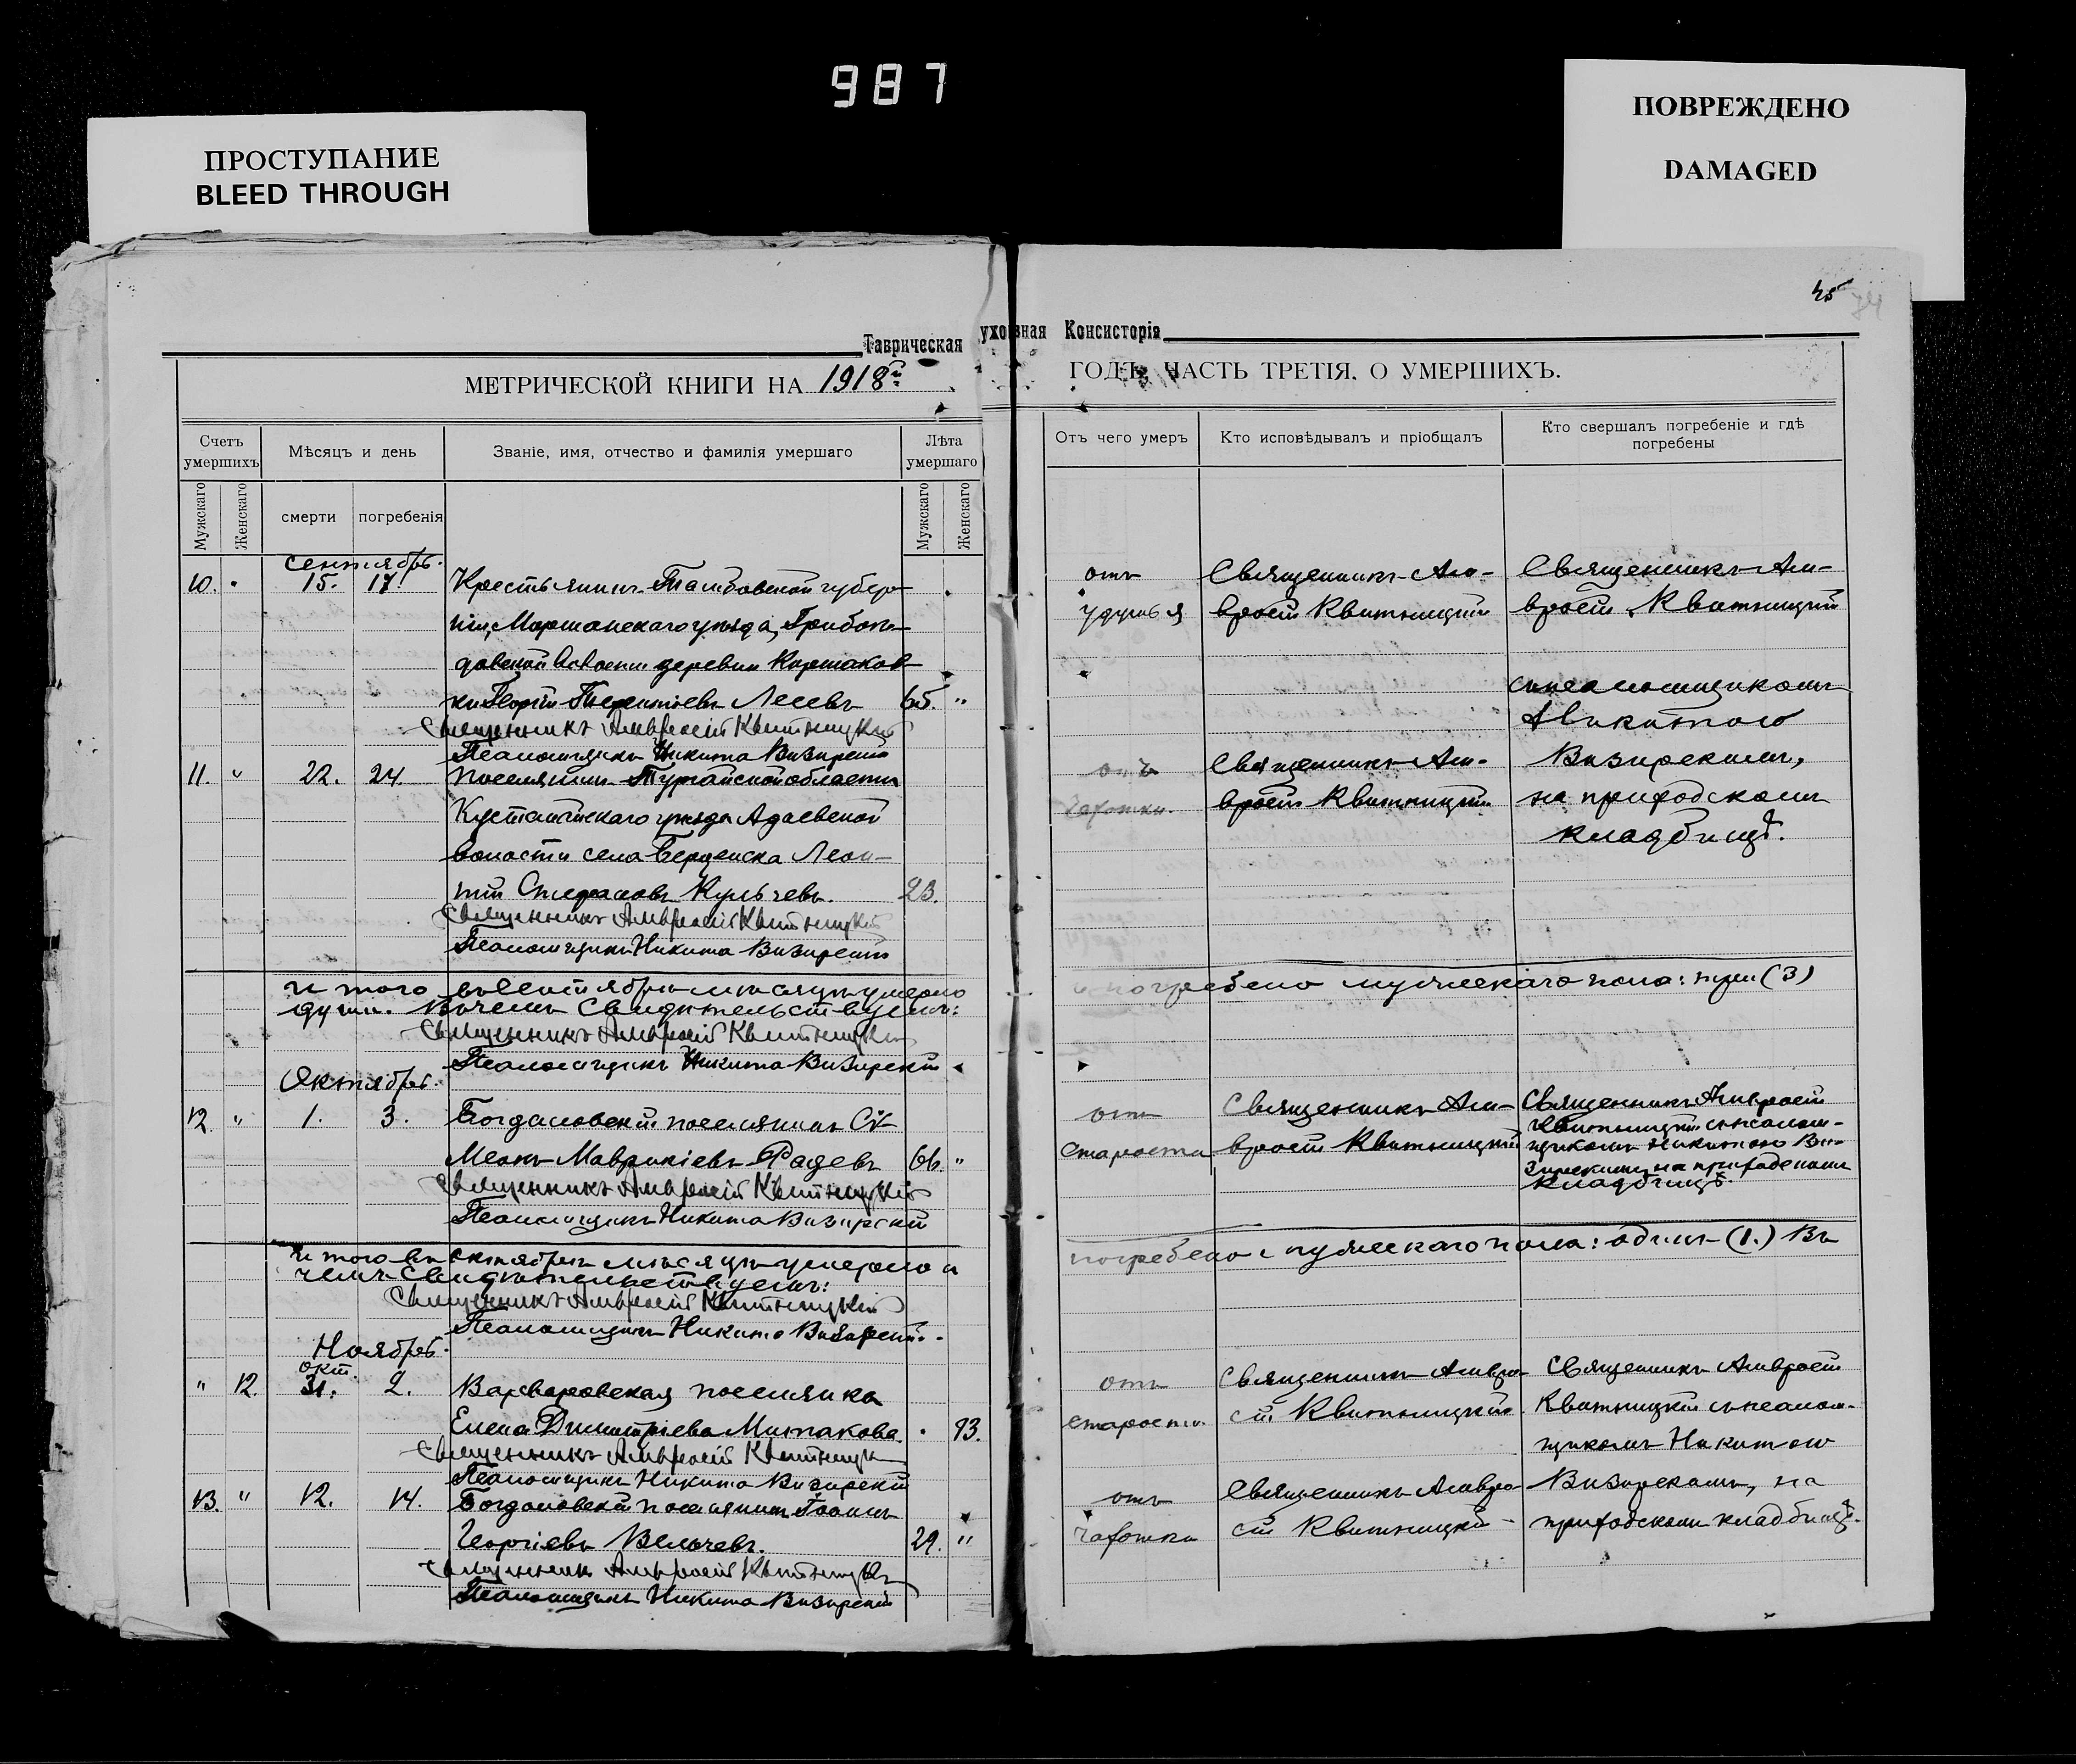 987
ПРОСТУПАНИЕ
BLEED THROUGH
ПОВРЕЖДЕНО
DAMAGED
45
Таврическая уховная Консисторія
МЕТРИЧЕСКОЙ КНИГИ НА 1918 г. ГОДЪ, ЧАСТЬ ТРЕТІЯ, О УМЕРШИХЪ.
Счетъ умершихъ
Мѣсяцъ и день
Званіе, имя, отчество и фамилія умершаго
Лѣта умершаго
Отъ чего умеръ
Кто исповѣдывалъ и пріобщалъ
Кто свершалъ погребеніе и гдѣ погребены
Мужскаго
Женскаго
смерти
погребенія
Мужскаго
Женскаго
Сентябрь.
10. " 15. 17. Крестьянинъ Тамбовской губер-
ніи, Моршанскаго уѣзда,
довской волости деревни
ки Георгій Терентіевъ Лесевъ 65. "
Священникъ Амвросій Квитницкій
Псаломщикъ Никита Визирскій
отъ
удушья
Священникъ Ам-
вросій Квитницкій
Священникъ Ам-
вросій Квитницкій
съ псаломщикомъ
Никитою
Визирскимъ,
на приходскомъ
кладбищѣ.
11. " 22. 24. Поселянинъ Тургайской области
Кустанайскаго уѣзда Адаевской
волости села Берденска Леон-
тій Стефановъ Кульчевъ. 23.
Священникъ Амвросій Квитницкій
Псаломщикъ Никита Визирскій
отъ
чахотки.
Священникъ Ам-
вросій Квитницкій
Итого въ Сентябрѣ мѣсяцѣ умерло и погребено мужескаго пола: три (3)
души. Въ чемъ свидѣтельствуемъ:
Священникъ Амвросій Квитницкій
Псаломщикъ Никита Визирскій
Октябрь.
12. " 1. 3. Богдановскій поселянинъ Си-
меонъ Маврикіевъ Фадевъ 66. "
Священникъ Амвросій Квитницкій
Псаломщикъ Никита Визирскій
отъ
старости
Священникъ Ам-
вросій Квитницкій
Священникъ Амвросій
Квитницкій съ псалом-
щикомъ Никитою Ви-
зирскимъ на приходскомъ
кладбищѣ.
Итого въ октябрѣ мѣсяцѣ умерло и погребено мужескаго пола: одинъ (1.) Въ
чемъ свидѣтельствуемъ:
Священникъ Амвросій Квитницкій
Псаломщикъ Никита Визирскій.
Ноябрь.
окт.
" 12. 31. 2. Варваровская поселянка
Елена Димитріева Митакова. " 93.
Священникъ Амвросій Квитницкій
Псаломщикъ Никита Визирскій
отъ
старости.
Священникъ Амвро-
сій Квитницкій.
Священникъ Амвросій
Квитницкій съ псалом-
щикомъ Никитою
Визирскимъ, на
приходскомъ кладбищѣ.
13. " 12. 14. Богдановскій поселянинъ Іоаннъ
Георгіевъ Велчевъ. 29. "
Священникъ Амвросій Квитницкій
Псаломщикъ Никита Визирскій
отъ
чахотки
Священникъ Амвро-
сій Квитницкій